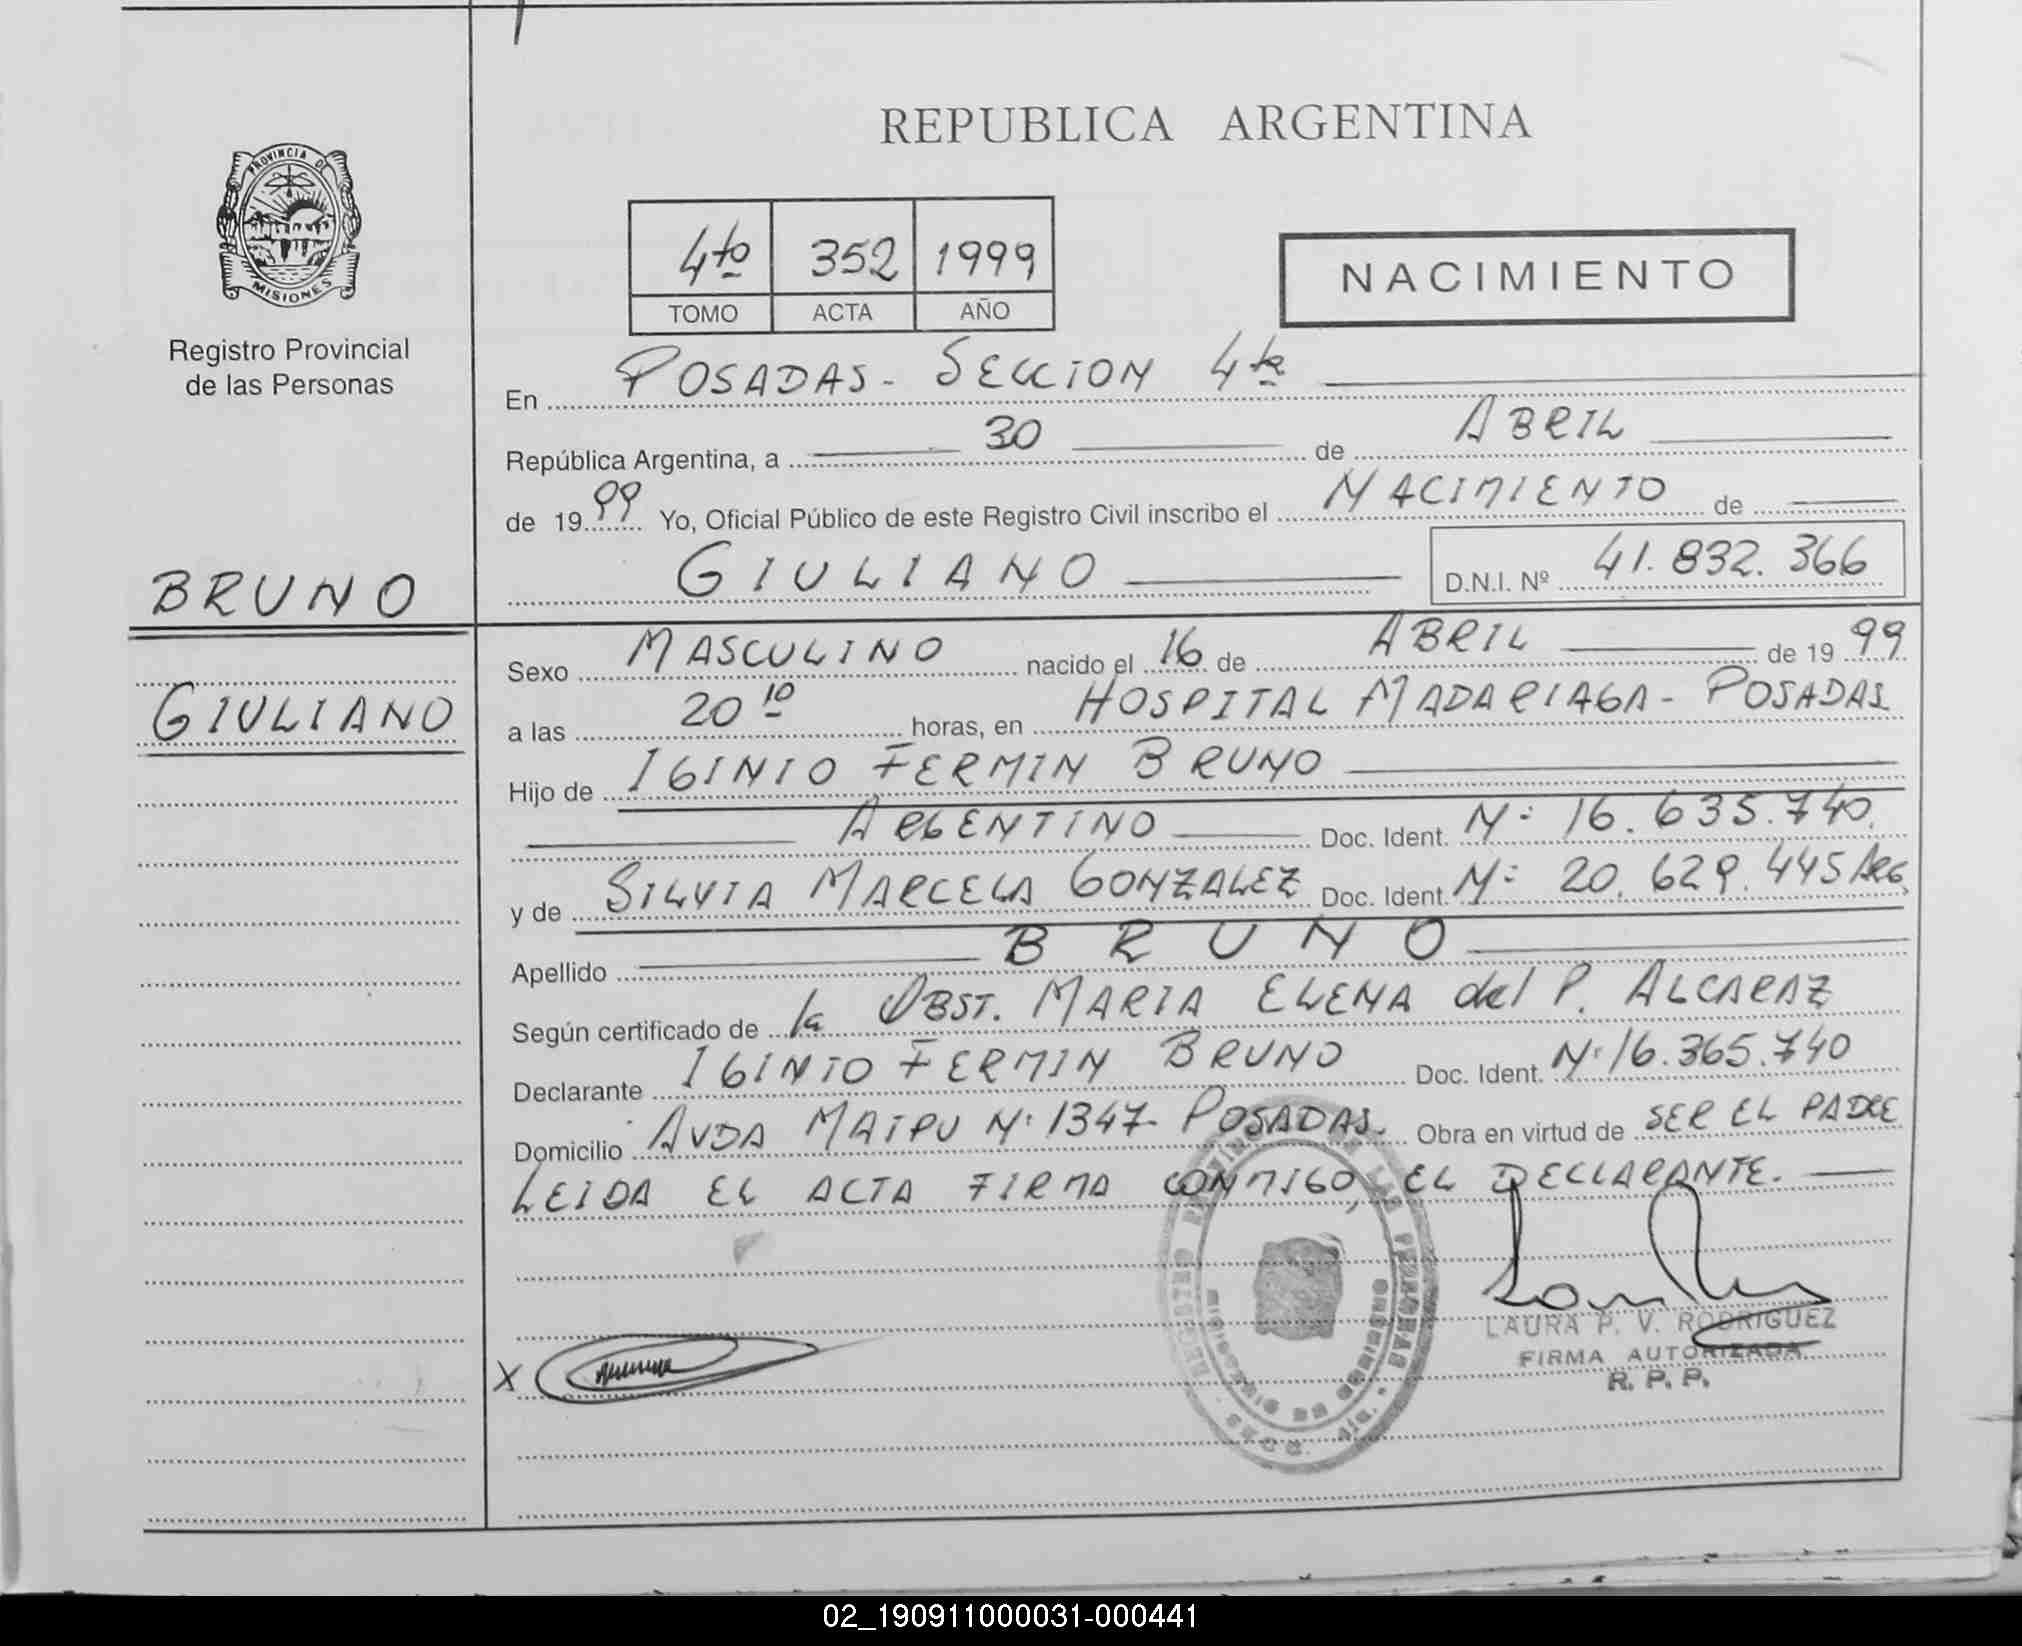 REPUBLICA ARGENTINA
PROVINCIA DE
MISIONES
Registro Provincial
de las Personas
4to 352 1999
TOMO ACTA AÑO
NACIMIENTO
En POSADAS - SECCION 4ta
República Argentina, a 30 de ABRIL
de 1999 Yo, Oficial Público de este Registro Civil inscribo el NACIMIENTO de
GIULIANO D.N.I. Nº 41.832.366
BRUNO
GIULIANO
Sexo MASCULINO nacido el 16 de ABRIL de 1999
a las 20 10 horas, en HOSPITAL MADARIAGA - POSADAS
Hijo de IGINIO FERMIN BRUNO
ARGENTINO Doc. Ident. Nº 16.635.740
y de SILVIA MARCELA GONZALEZ Doc. Ident. Nº 20.629.445 ARG
Apellido BRUNO
Según certificado de la OBST. MARIA ELENA del P. ALCARAZ
Declarante IGINIO FERMIN BRUNO Doc. Ident. Nº 16.365.740
Domicilio AVDA MAIPU Nº 1347 - POSADAS. Obra en virtud de SER EL PADRE
LEIDA EL ACTA FIRMA CONMIGO, EL DECLARANTE.
X
LAURA P. V. RODRIGUEZ
FIRMA AUTORIZADA
R. P. P.
02_190911000031-000441